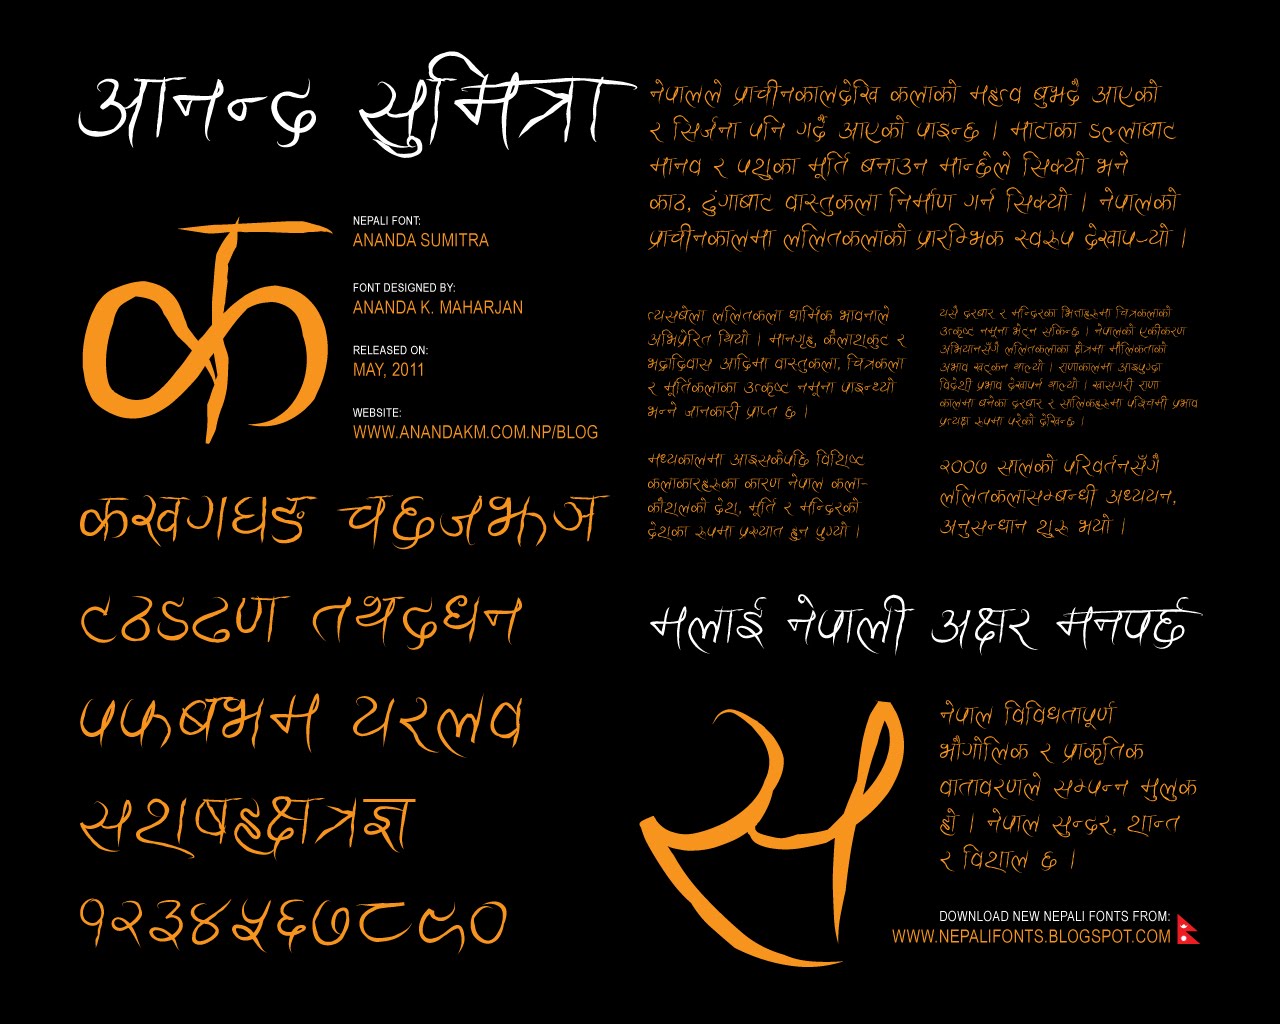 आनन्द सुमित्रा
क
NEPALI FONT:
ANANDA SUMITRA
FONT DESIGNED BY:
ANANDA K. MAHARJAN
RELEASED ON:
MAY, 2011
WEBSITE:
WWW.ANANDAKM.COM.NP/BLOG
कखगघङ चछजझञ
टठडढण तथदधन
पफबभम यरलव
सशषहक्षत्रज्ञ
१२३४५६७८९०
नेपालले प्राचीनकालदेखि कलाको महत्व बुझ्दै आएको
र सिर्जना पनि गर्दै आएको पाइन्छ । माटाका डल्लाबाट
मानव र पशुका मूर्ति बनाउन मान्छेले सिक्यो भने
काठ, ढुंगाबाट वास्तुकला निर्माण गर्न सिक्यो । नेपालको
प्राचीनकालमा ललितकलाको प्रारम्भिक स्वरूप देखापर्‍यो ।
त्यसबेला ललितकला धार्मिक भावनाले
अभिप्रेरित थियो । मानगृह, कैलाशकुट र
भद्रादिवास आदिमा वास्तुकला, चित्रकला
र मूर्तिकलाका उत्कृष्ट नमूना पाइन्थ्यो
भन्ने जानकारी प्राप्त छ ।
मध्यकालमा आइसकेपछि विशिष्ट
कलाकारहरुका कारण नेपाल कला-
कौशलको देश, मूर्ति र मन्दिरको
देशका रूपमा प्रख्यात हुन पुग्यो ।
यसै दरबार र मन्दिरका भित्ताहरुमा चित्रकलाको
उत्कृष्ट नमूना भेट्न सकिन्छ । नेपालको एकीकरण
अभियानसँगै ललितकलाका क्षेत्रमा मौलिकताको
अभाव खट्कन थाल्यो । राणाकालमा आइपुग्दा
विदेशी प्रभाव देखापर्न थाल्यो । खासगरी राणा
कालमा बनेका दरबार र सालिकहरुमा पश्चिमी प्रभाव
प्रत्यक्ष रूपमा परेको देखिन्छ ।
२००७ सालको परिवर्तनसँगै
ललितकलासम्बन्धी अध्ययन,
अनुसन्धान शुरू भयो ।
मलाई नेपाली अक्षर मनपर्छ
स
नेपाल विविधतापूर्ण
भौगोलिक र प्राकृतिक
वातावरणले सम्पन्न मुलुक
हो । नेपाल सुन्दर, शान्त
र विशाल छ ।
DOWNLOAD NEW NEPALI FONTS FROM:
WWW.NEPALIFONTS.BLOGSPOT.COM